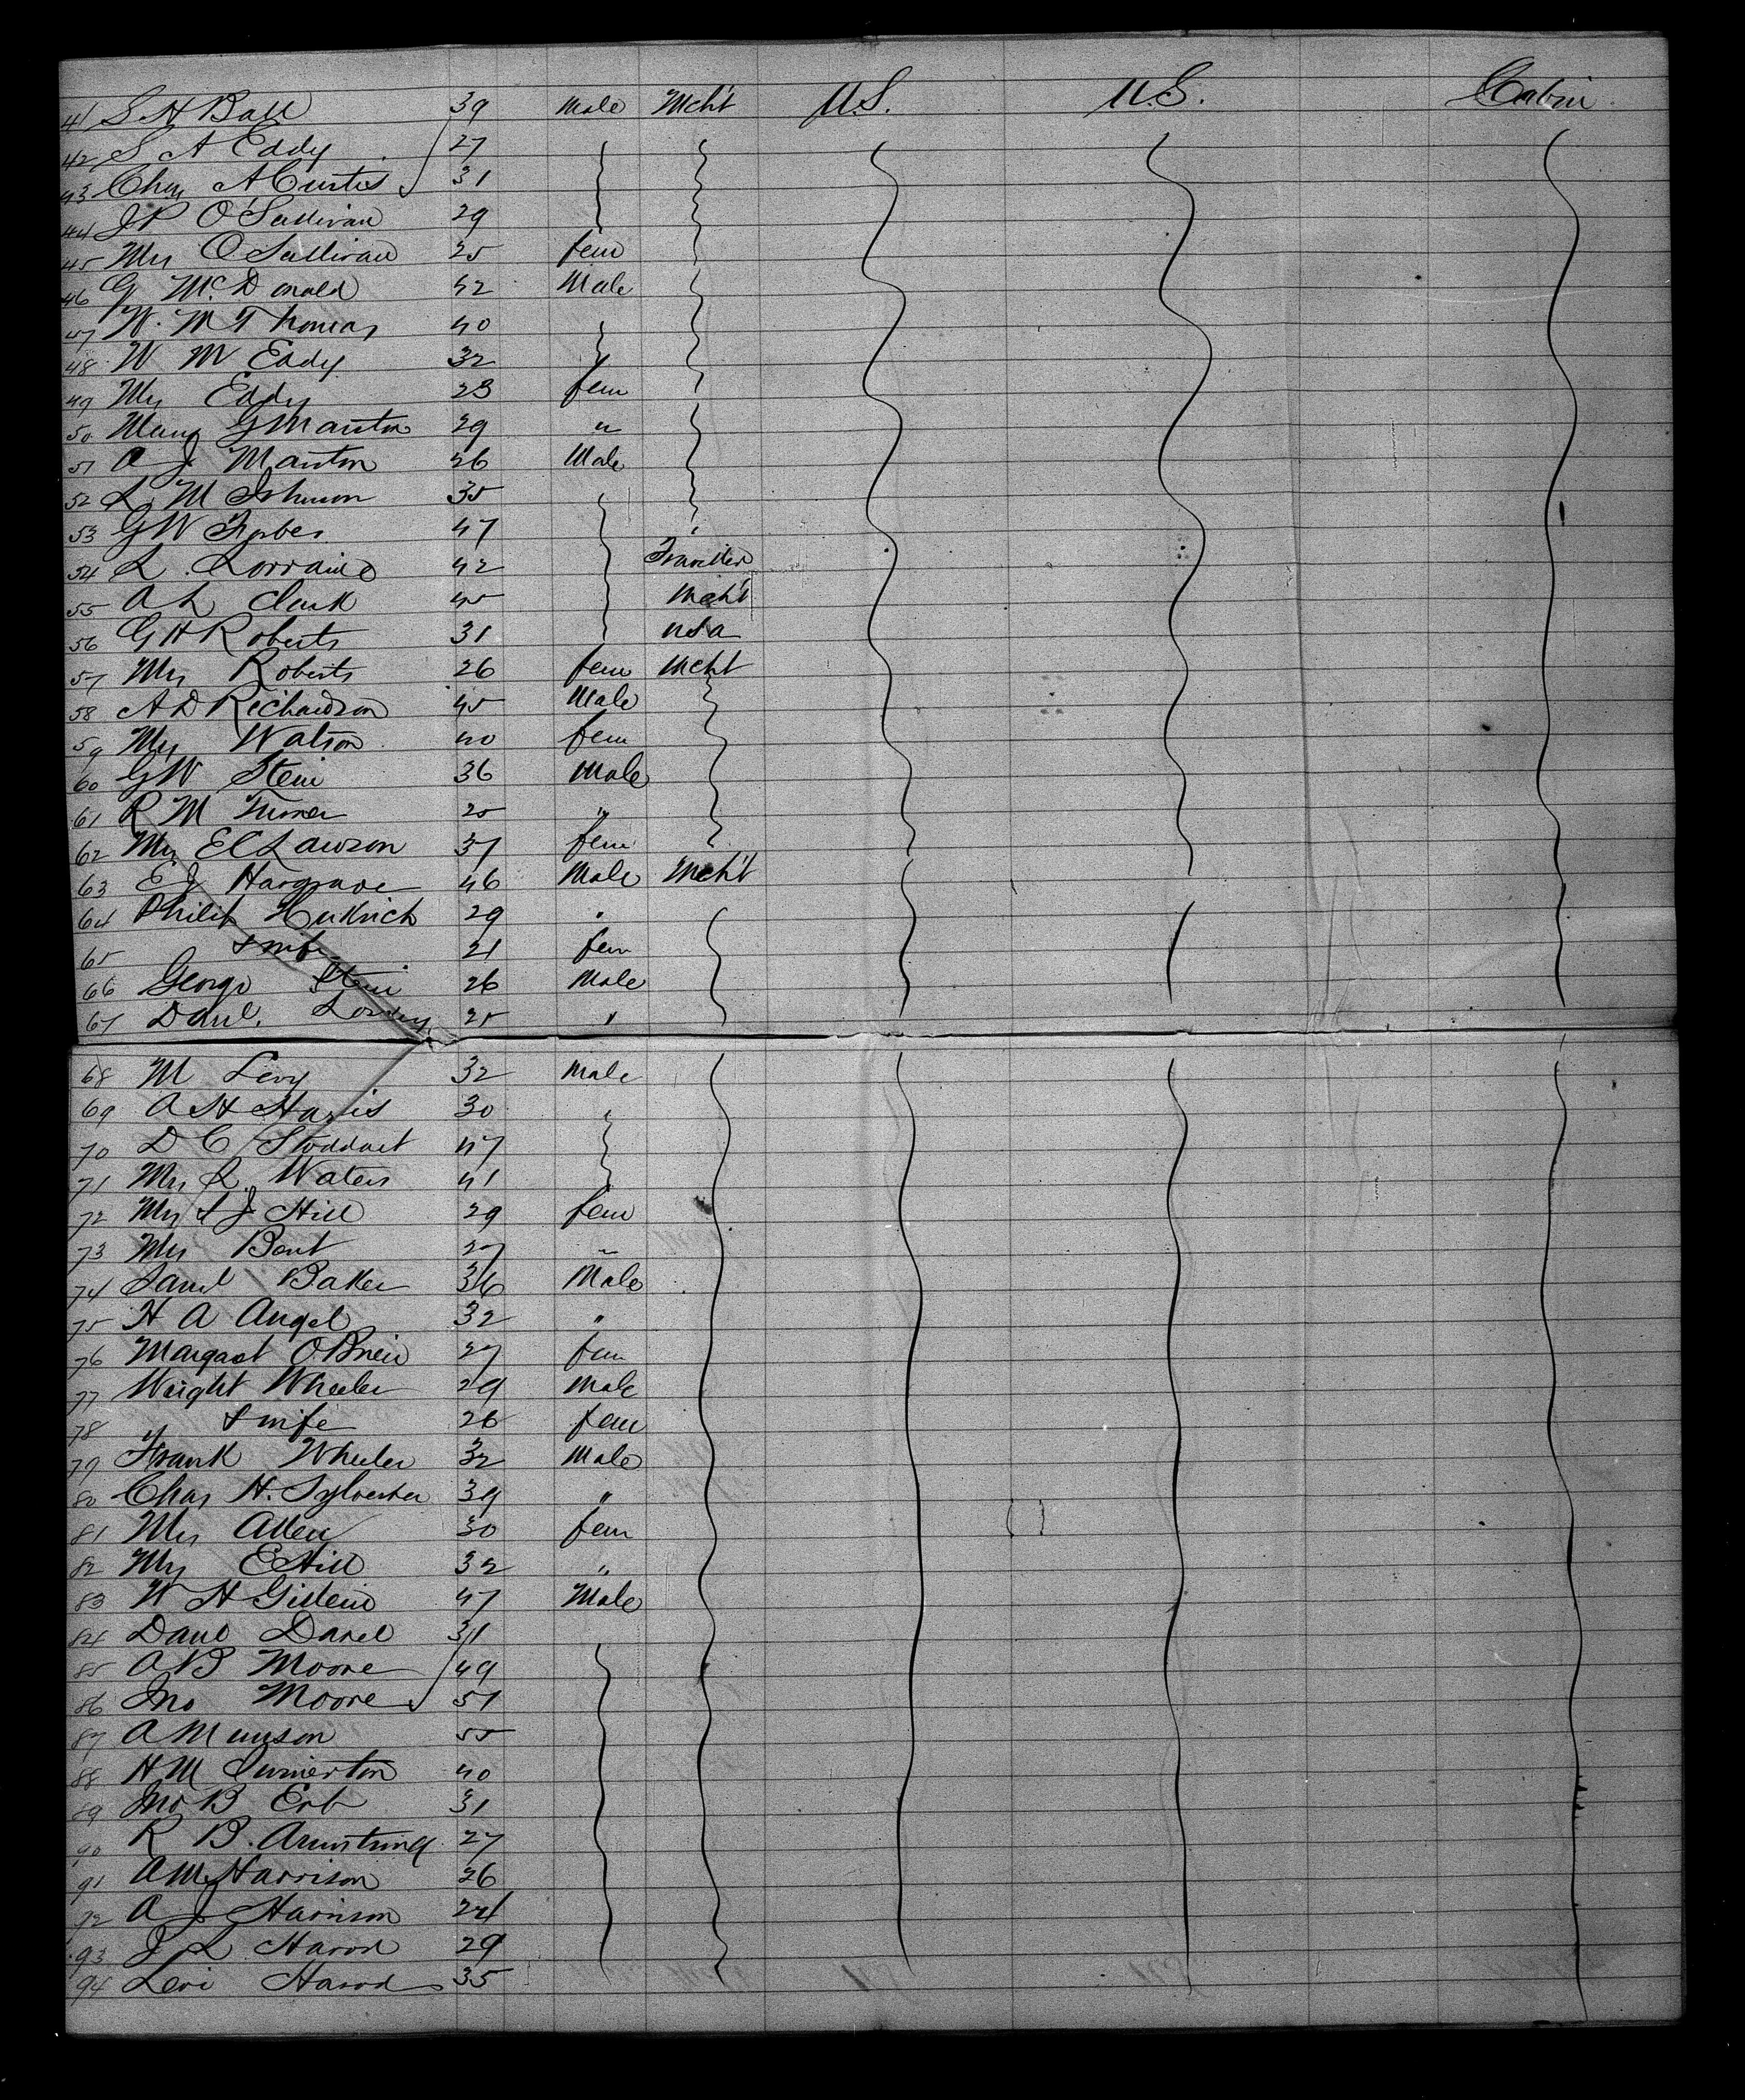 41 S H Ball 39 Male Mcht U.S. U.S. Cabin
42 S A Eady 27
43 Chas A Curtis 31
44 J P O'Sullivan 29
45 Mrs O Sullivan 25 fem
46 G McDonald 42 Male
47 W. M Thomas 40
48 W M Eady 32
49 Mrs Eady 23 fem
50 Mary G Manton 29 "
51 A J Manton 26 Male
52 L M Johnson 35
53 G W Forbes 47
54 L. Lorraine 42 Traveller
55 A L Clark 45 Mcht
56 G H Roberts 31 USA
57 Mrs Roberts 26 fem Mcht
58 A D Richardson 45 Male
59 Mrs Watson 40 fem
60 G W Stein 36 Male
61 R M Turner 25 "
62 Mrs E C Lawson 37 fem
63 E J Hargrave 46 Male Mcht
64 Philip 29 "
65 & wife 21 fem
66 George Stein 26 Male
67 Danl. 25 "
68 M Levy 32 Male
69 A H Harris 30
70 D C Stoddart 47
71 Mrs L. Waters 41
72 Mrs S J Hill 29 fem
73 Mrs Bent 27 "
74 Saml Baker 36 Male
75 H A Angel 32 "
76 Margaret O'Brien 27 fem
77 Wright Wheeler 29 Male
78 & wife 26 fem
79 Frank Wheeler 32 Male
80 Chas H. Sylvester 39 "
81 Mrs Allen 30 fem
82 Mrs E Hill 32 "
83 W H 47 Male
84 Danl 31
85 A B Moore 49
86 Jno Moore 51
87 A Munson 55
88 H M 40
89 Jno B Erb 31
90 R B. Armstrong 27
91 A M Harrison 26
92 A J Harrison 24
93 J L Harod 29
94 Levi Harod 35